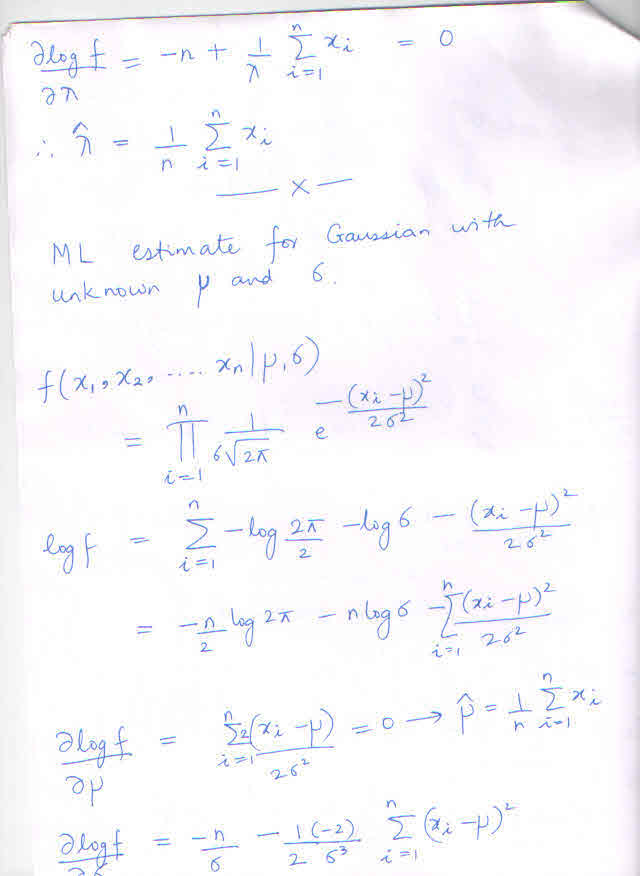 ∂log f / ∂λ = -n + 1/λ Σ_{i=1}^{n} x_i = 0
∴ λ̂ = 1/n Σ_{i=1}^{n} x_i
— x —
ML estimate for Gaussian with
unknown μ and σ.
f(x_1, x_2, .... x_n | μ, σ)
= ∏_{i=1}^{n} 1/(σ√2π) e^{-(x_i - μ)^2 / 2σ^2}
log f = Σ_{i=1}^{n} -log 2π/2 - log σ - (x_i - μ)^2 / 2σ^2
= -n/2 log 2π - n log σ - Σ_{i=1}^{n} (x_i - μ)^2 / 2σ^2
∂log f / ∂μ = Σ_{i=1}^{n} 2(x_i - μ) / 2σ^2 = 0 → μ̂ = 1/n Σ_{i=1}^{n} x_i
∂log f / ∂σ = -n/σ - 1/2 (-2)/σ^3 Σ_{i=1}^{n} (x_i - μ)^2